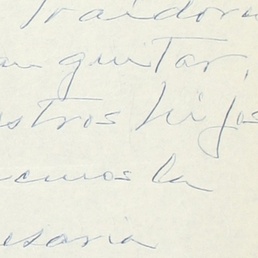 traidora
an quitar,
stros hijos
cemos la
esaria